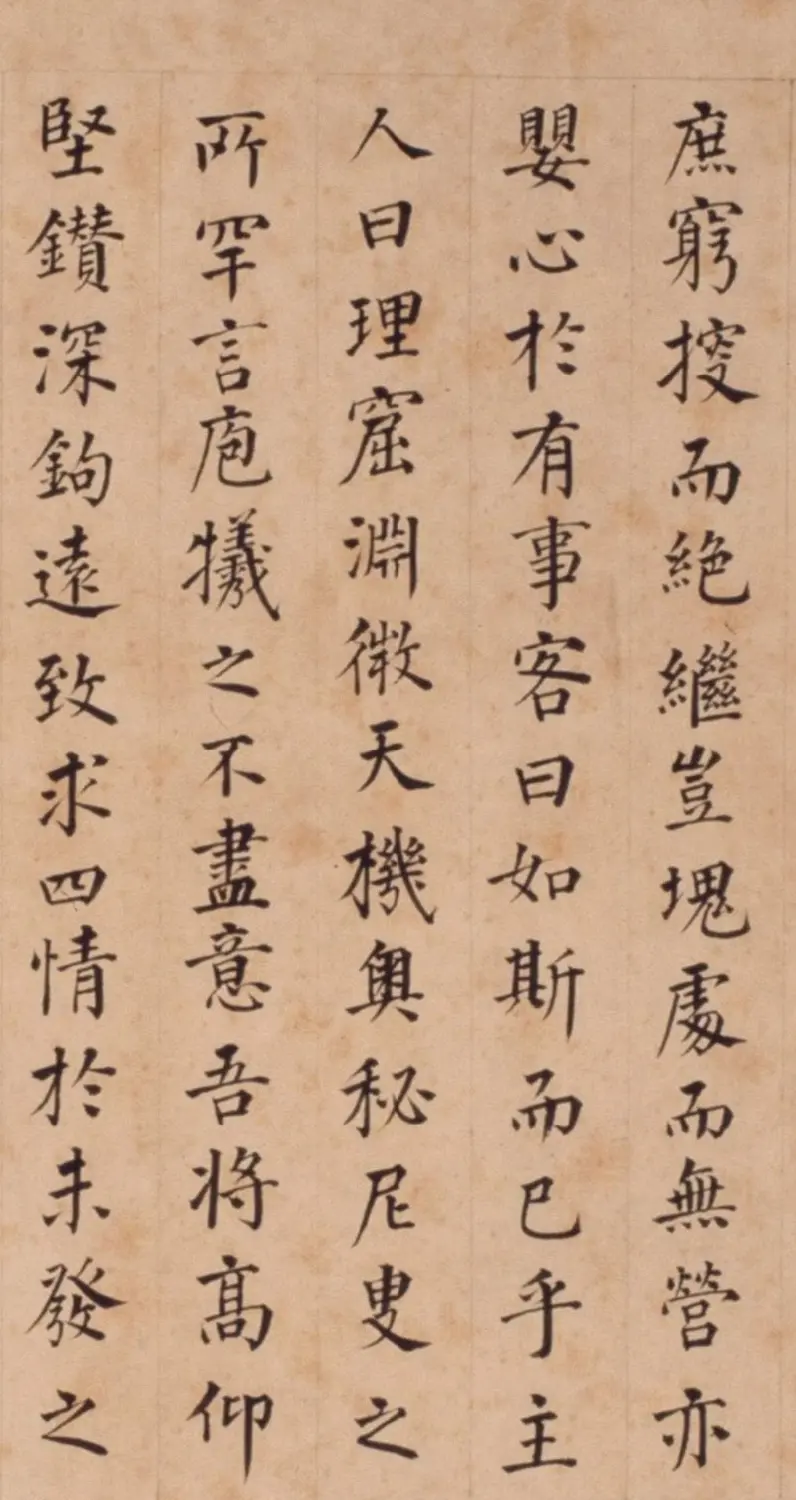 庶窮搜而絶繼豈塊處而無營亦
嬰心於有事客曰如斯而已乎主
人曰理窟淵微天機奥秘尼叟之
所罕言庖犧之不盡意吾将高仰
堅鑚深鉤遠致求四情於未發之